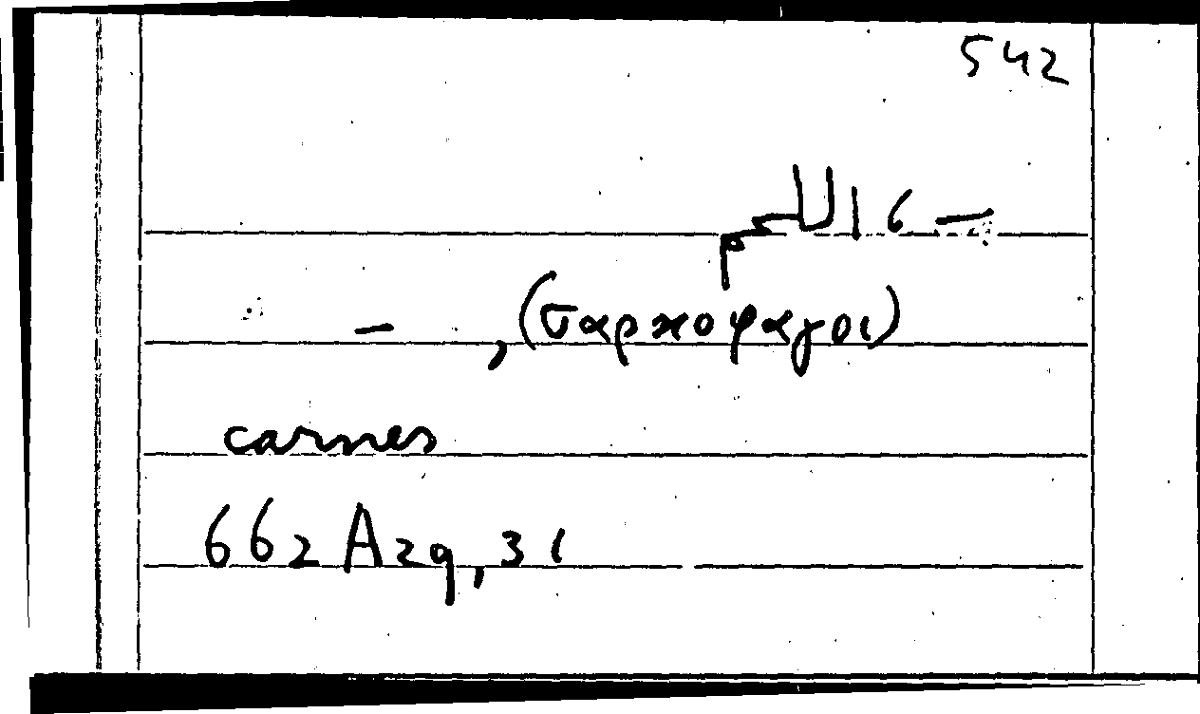 542
– ، اللحم
(σαρκοφαγοι) , –
carnes
662 A 29, 31